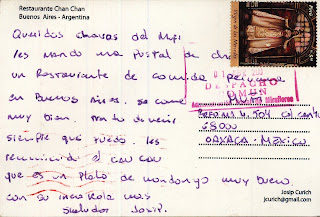 Restaurante Chan Chan
Buenos Aires - Argentina
Queridos chavas del
les mando una postal de
un Restaurante de comida peruana
en Buenos Aires. se come
muy bien. trato de venir
siempre que puedo. les
recomiendo el cau cau
que es un plato de mondongo muy bueno
con su
saludos Josip.
DESPACHO
COMUN
Miraflores
68000
OAXACA - MEXICO
Josip Curich
jcurich@gmail.com